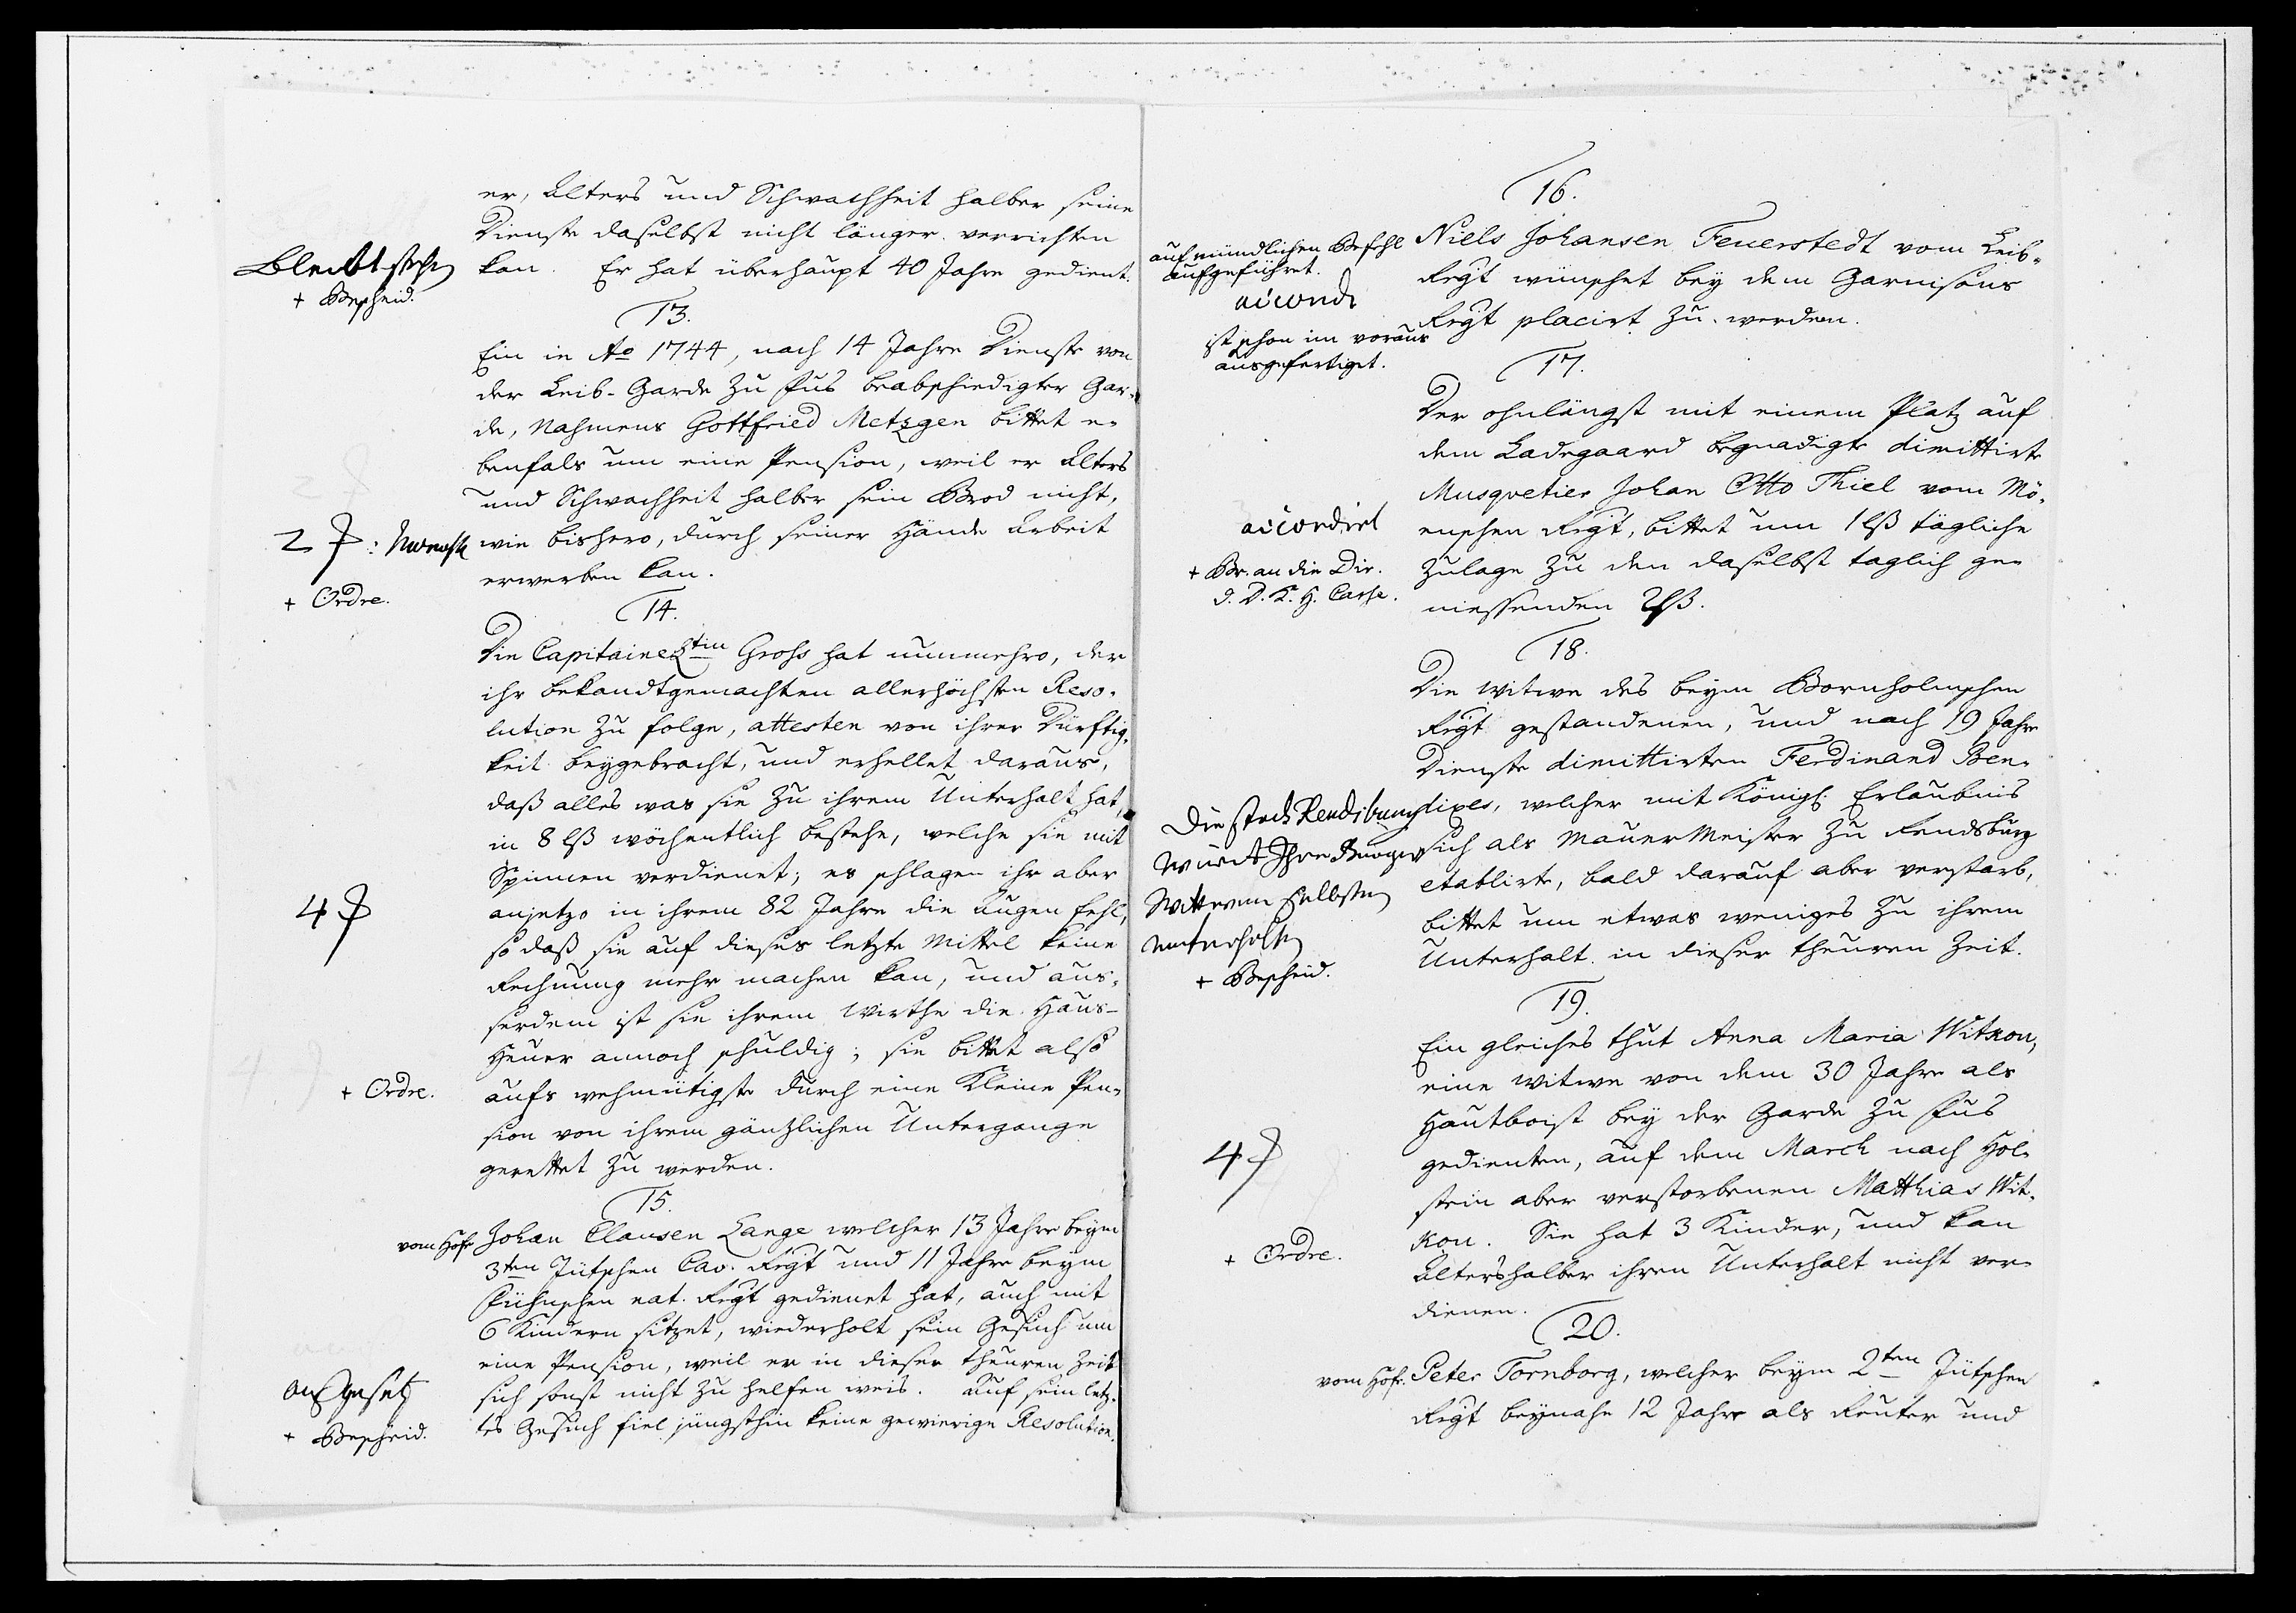 er, Alters und Schwachheit halber seine
Dienste daselbst nicht länger verrichten
kan. Er hat überhaupt 40 Jahre gedient.
Bleibt stehen
+ Bescheid.
13.
Ein in Ao 1744, nach 14 Jahre Dienste von
der Leib-Garde zu Fus beabschiedigter Gar-
de, Nahmens Gottfried Metzgen bittet e-
benfals um eine Pension, weil er Alters
und Schwachheit halber sein Brod nicht,
wie bishero, durch seiner Hände Arbeit
erwerben kan.
2
+ Ordre.
14.
Die Capitaine Ltin Gross hat nunmehro, der
ihr bekandtgemachten allerhöchsten Reso-
lution zu folge, attesten von ihrer Dürftig-
keit beygebracht, und erhellet daraus,
daß alles was sie zu ihrem Unterhalt hat,
in 8 lß wöchentlich bestehe, welche sie mit
Spinnen verdienet; es schlagen ihr aber
anjetzo in ihrem 82 Jahre die Augen fehl,
so daß sie auf dieses letzte Mittel keine
Rechnung mehr machen kan, und aus-
serdem ist sie ihrem Wirthe die Haus-
Heuer annoch schuldig; sie bittet also
aufs wehmütigste durch eine kleine Pen-
sion von ihrem gäntzlichen Untergange
gerettet zu werden.
4
+ Ordre.
15.
vom Hofe
Johan Clausen Lange welcher 13 Jahre beym
3ten Jütschen Cav. Regt und 11 Jahre beym
Fühnschen nat. Regt gedienet hat, auch mit
6 Kindern sitzet, wiederholt sein Gesuch um
eine Pension, weil er in dieser theuren Zeit
sich sonst nicht zu helfen weis. Auf sein letz-
tes Gesuch fiel jüngsthin keine gewierige Resolution.
+ Bescheid.
16.
Niels Johansen Feuerstedt vom Leib-
Regt wünschet bey dem Garnisons
Regt placirt zu werden.
auf mündlichen Befehl
aufgeführet.
accord
ist schon im voraus
ausgefertiget.
17.
Der ohnlängst mit einem Platz auf
dem Ladegaard begnadigte dimittirte
Musqvetier Johan Otto Thiel vom Mö-
enschen Regt, bittet um 1 lß tägliche
Zulage zu den daselbst taglich ge-
niessenden 2 lß.
accordirt
+ Br. an die Dir.
d. D. K. H. Casse.
18.
Die Witwe des beym Bornholmschen
Regt gestandenen, und nach 19 Jahre
Dienste dimittirten Ferdinand Ben-
dixes, welcher mit Königl. Erlaubnis
sich als Mauer Meister zu Rendsburg
etablirte, bald darauf aber verstarb,
bittet um etwas weniges zu ihrem
Unterhalt in dieser theuren Zeit.
Die stadt Rendsburg
Ihre Burger
Wittwen selbsten
unterhalten
+ Bescheid.
19.
Ein gleiches thut Anna Maria Witkou,
eine Witwe von dem 30 Jahre als
Hautboist bey der Garde zu Fus
gedienten, auf dem March nach Hol-
stein aber verstorbenen Matthias Wit-
kou. Sie hat 3 Kinder, und kan
Altershalber ihren Unterhalt nicht ver-
dienen.
4
+ Ordre.
20.
vom Hofe.
Peter Tornborg, welcher beym 2ten Jütschen
Regt beynahe 12 Jahre als Reuter und